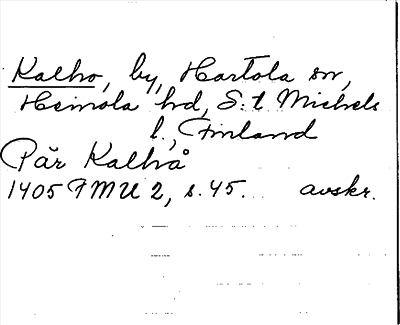 Kalho, by, Hartola sn,
Heinola hd, S:t Michels
l., Finland
Pär Kalhå
1405 FMU 2, s. 45. avskr.